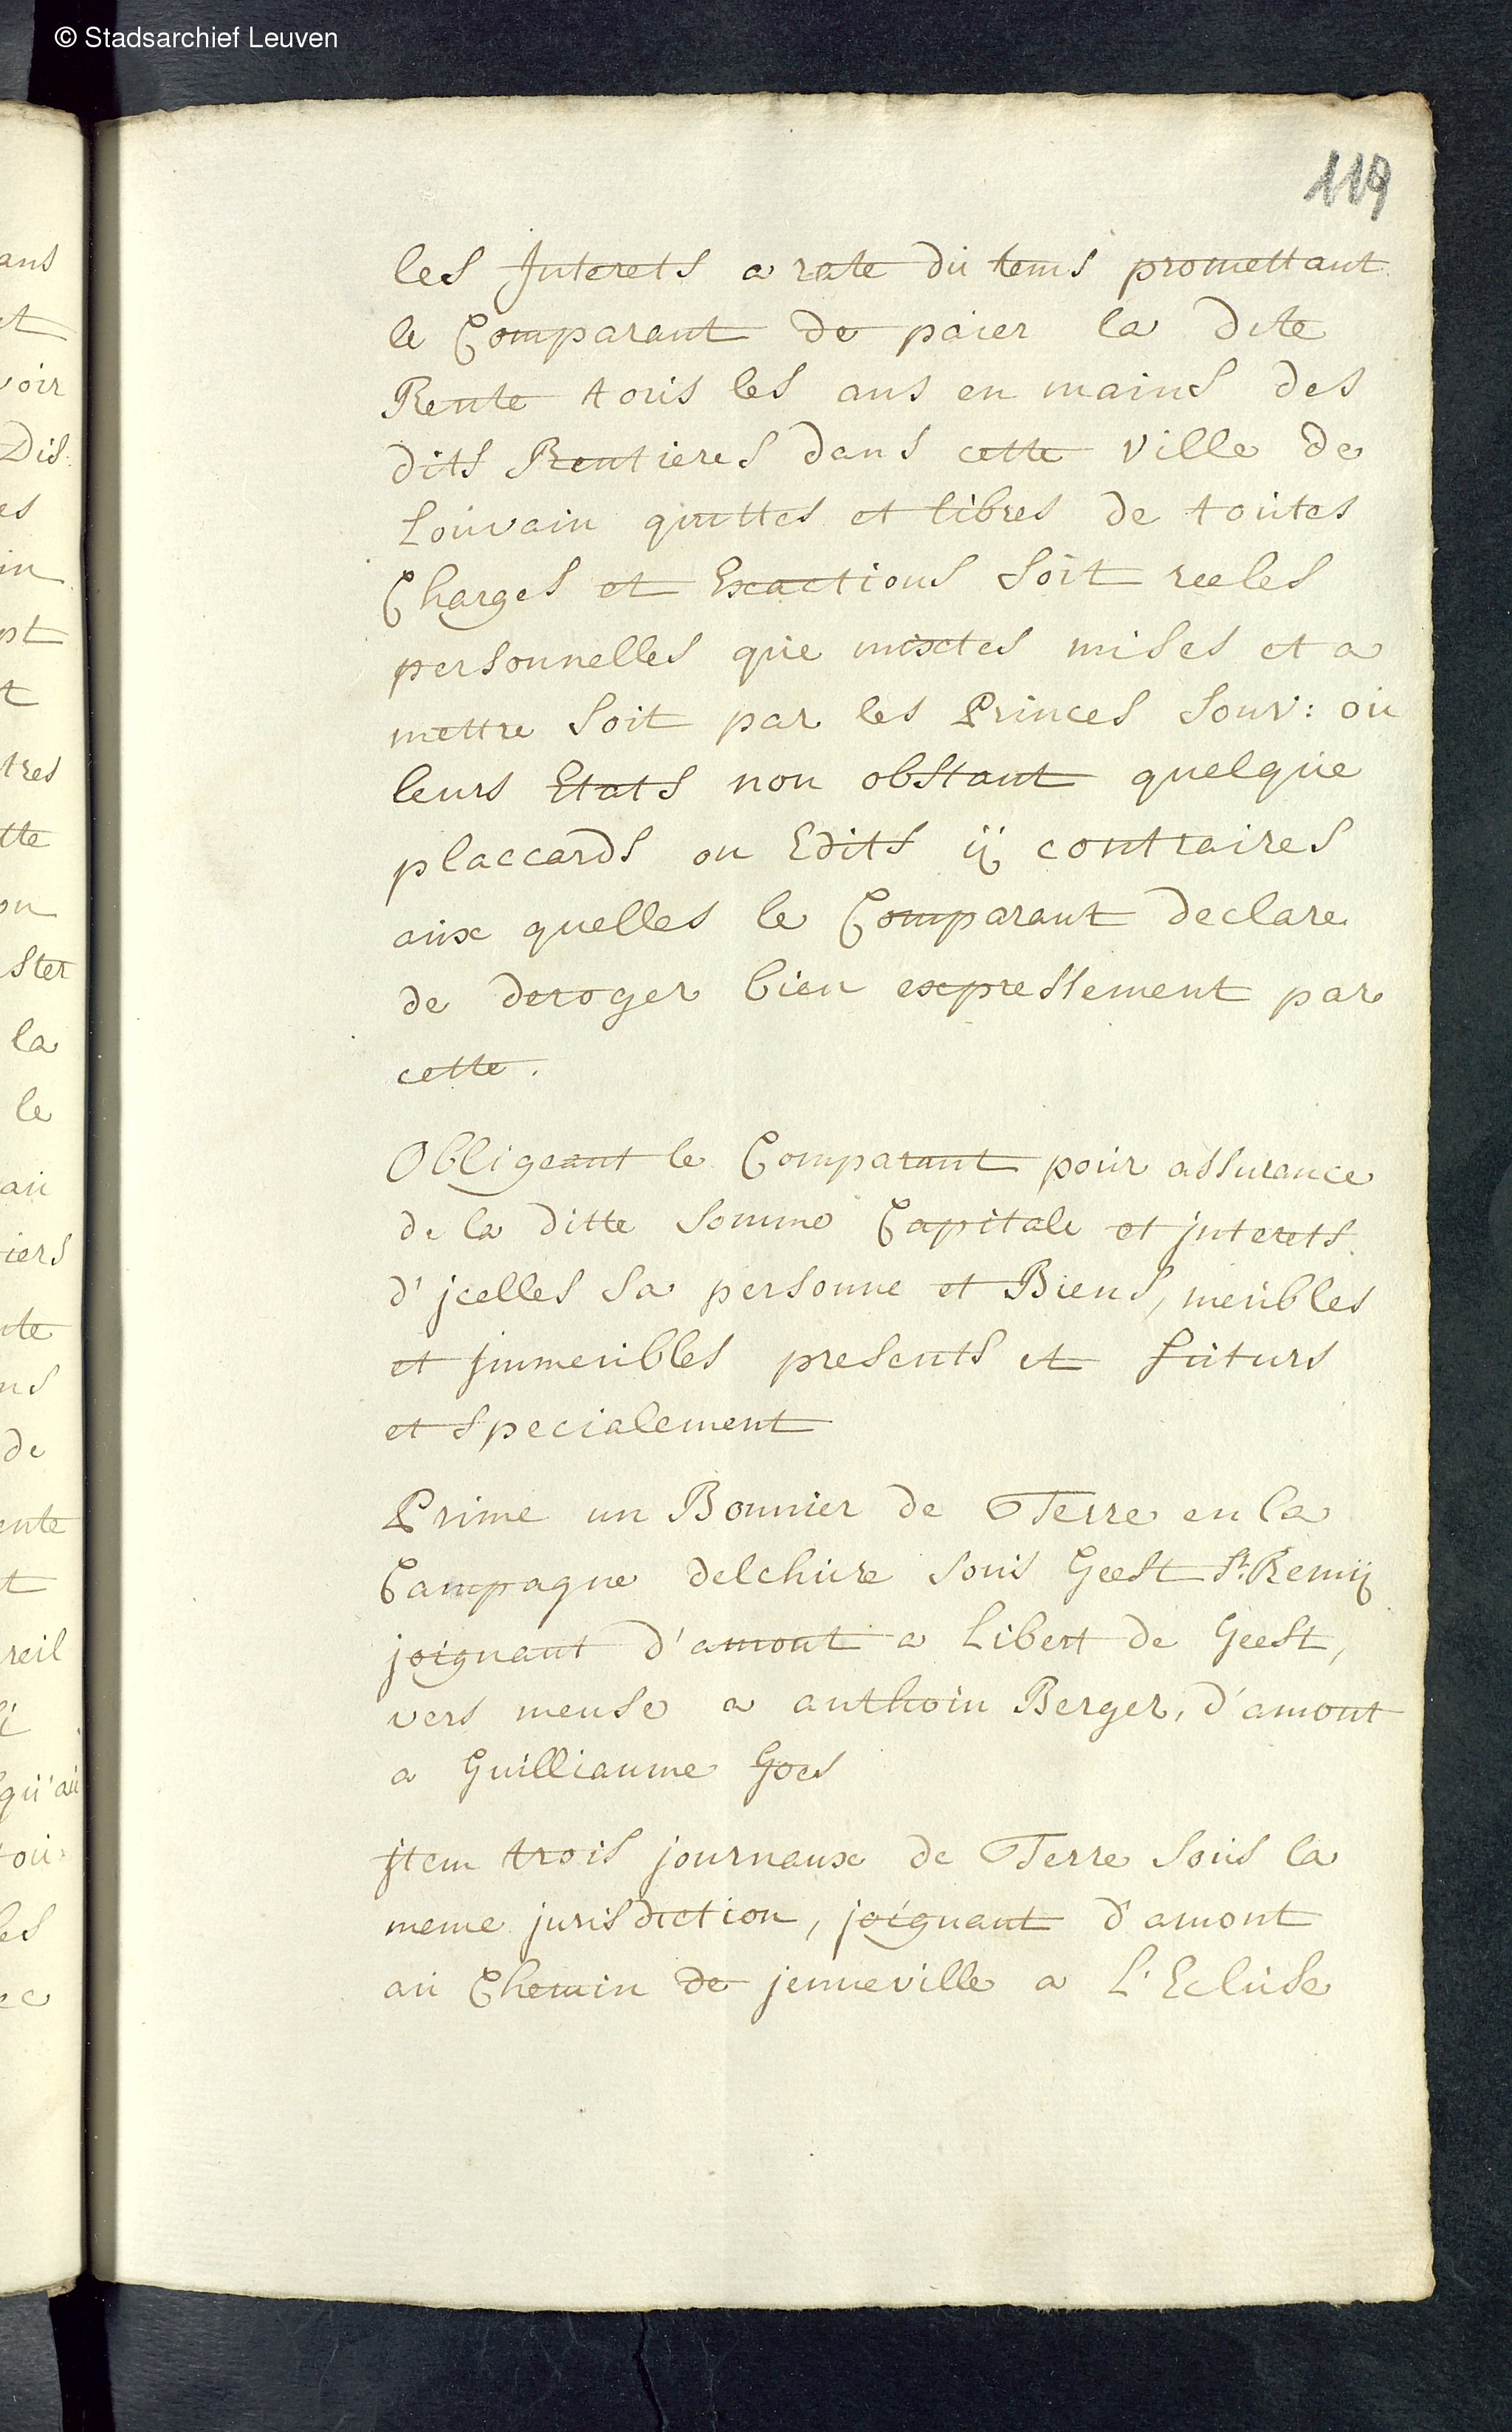 © Stadsarchief Leuven
119
les Interets a rate du tems promettant
le Comparant de paier la dite
Rente tous les ans en mains des
dits Rentieres dans cette ville de
Louvain quittes et libres de toutes
Charges et Exactions soit reeles
personnelles que mixtes mises et a
mettre soit par les Princes souv: ou
leurs Etats non obstant quelque
placcards ou Edits ÿ contraires
aux quelles le Comparant declare
de deroger bien expressement par
cette.
Obligeant le Comparant pour assurance
de la ditte somme Capitale et jnterets
d'jcelles sa personne et Biens, meubles
et jmmeubles presents et futurs
et specialement
Prime un Bonnier de Terre en la
Campagne delchure sous Geest St. Remÿ
joignant d'amont a Libert de Geest,
vers meuse a anthoin Berger, d'amont
a Guilliaume Goes
jtem trois journaux de Terre sous la
meme jurisdiction, joignant d'amont
au Chemin de jenneville a L'Ecluse
ans
et
voir
Dis
es
in
pt
t
tres
tte
on
ster
la
le
au
iers
nte
ns
de
ente
t
reil
qu'au
tou:
les